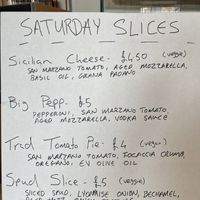 SATURDAY SLICES
Sicilian Cheese - £4.50 (veggie)
SAN MARZANO TOMATO, AGED MOZZARELLA,
BASIL OIL, GRANA PADANO
Big Pepp - £5
PEPPERONI, SAN MARZANO TOMATO,
AGED MOZZARELLA, VODKA SAUCE
Trad Tomato Pie - £4 (vegan)
SAN MARZANO TOMATO, FOCACCIA CRUMB,
OREGANO, EV OLIVE OIL
Spud Slice - £5 (veggie)
SLICED SPUD, LYONNAISE ONION, BECHAMEL,